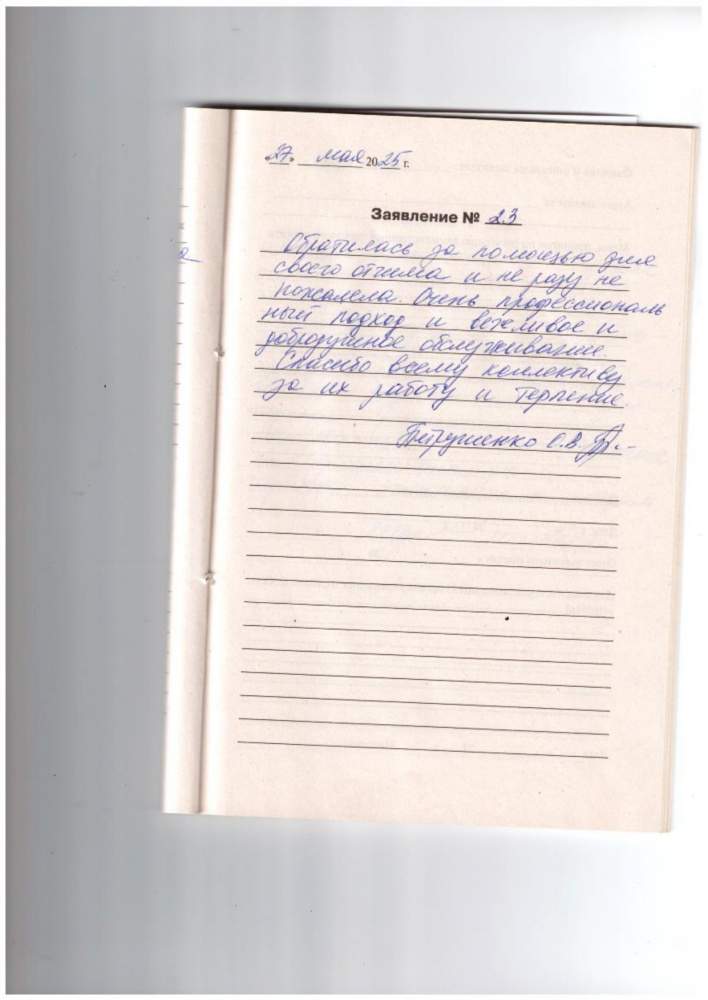 «27» мая 2025 г.
Заявление № 23
Обратилась за помощью для
своего отчима и не разу не
пожалела. Очень профессиональ
ный подход и вежливое и
добродушное обслуживание.
Спасибо всему коллективу
за их работу и терпение.
Петрушенко С.В.